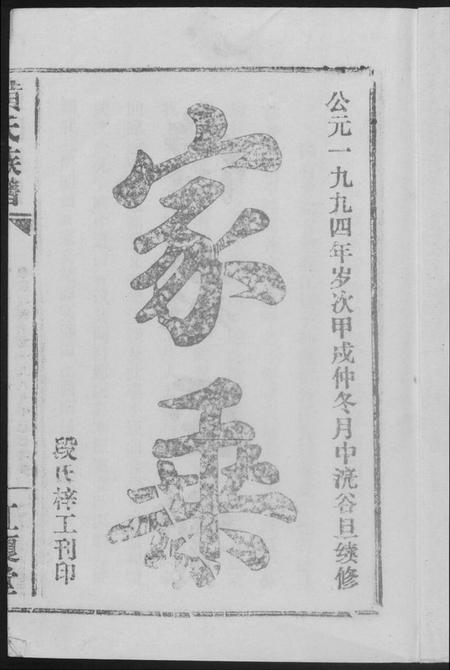 公元一九九四年岁次甲戌仲冬月中浣谷旦续修
家乘
段氏梓工刊印
黄氏族谱
江夏堂